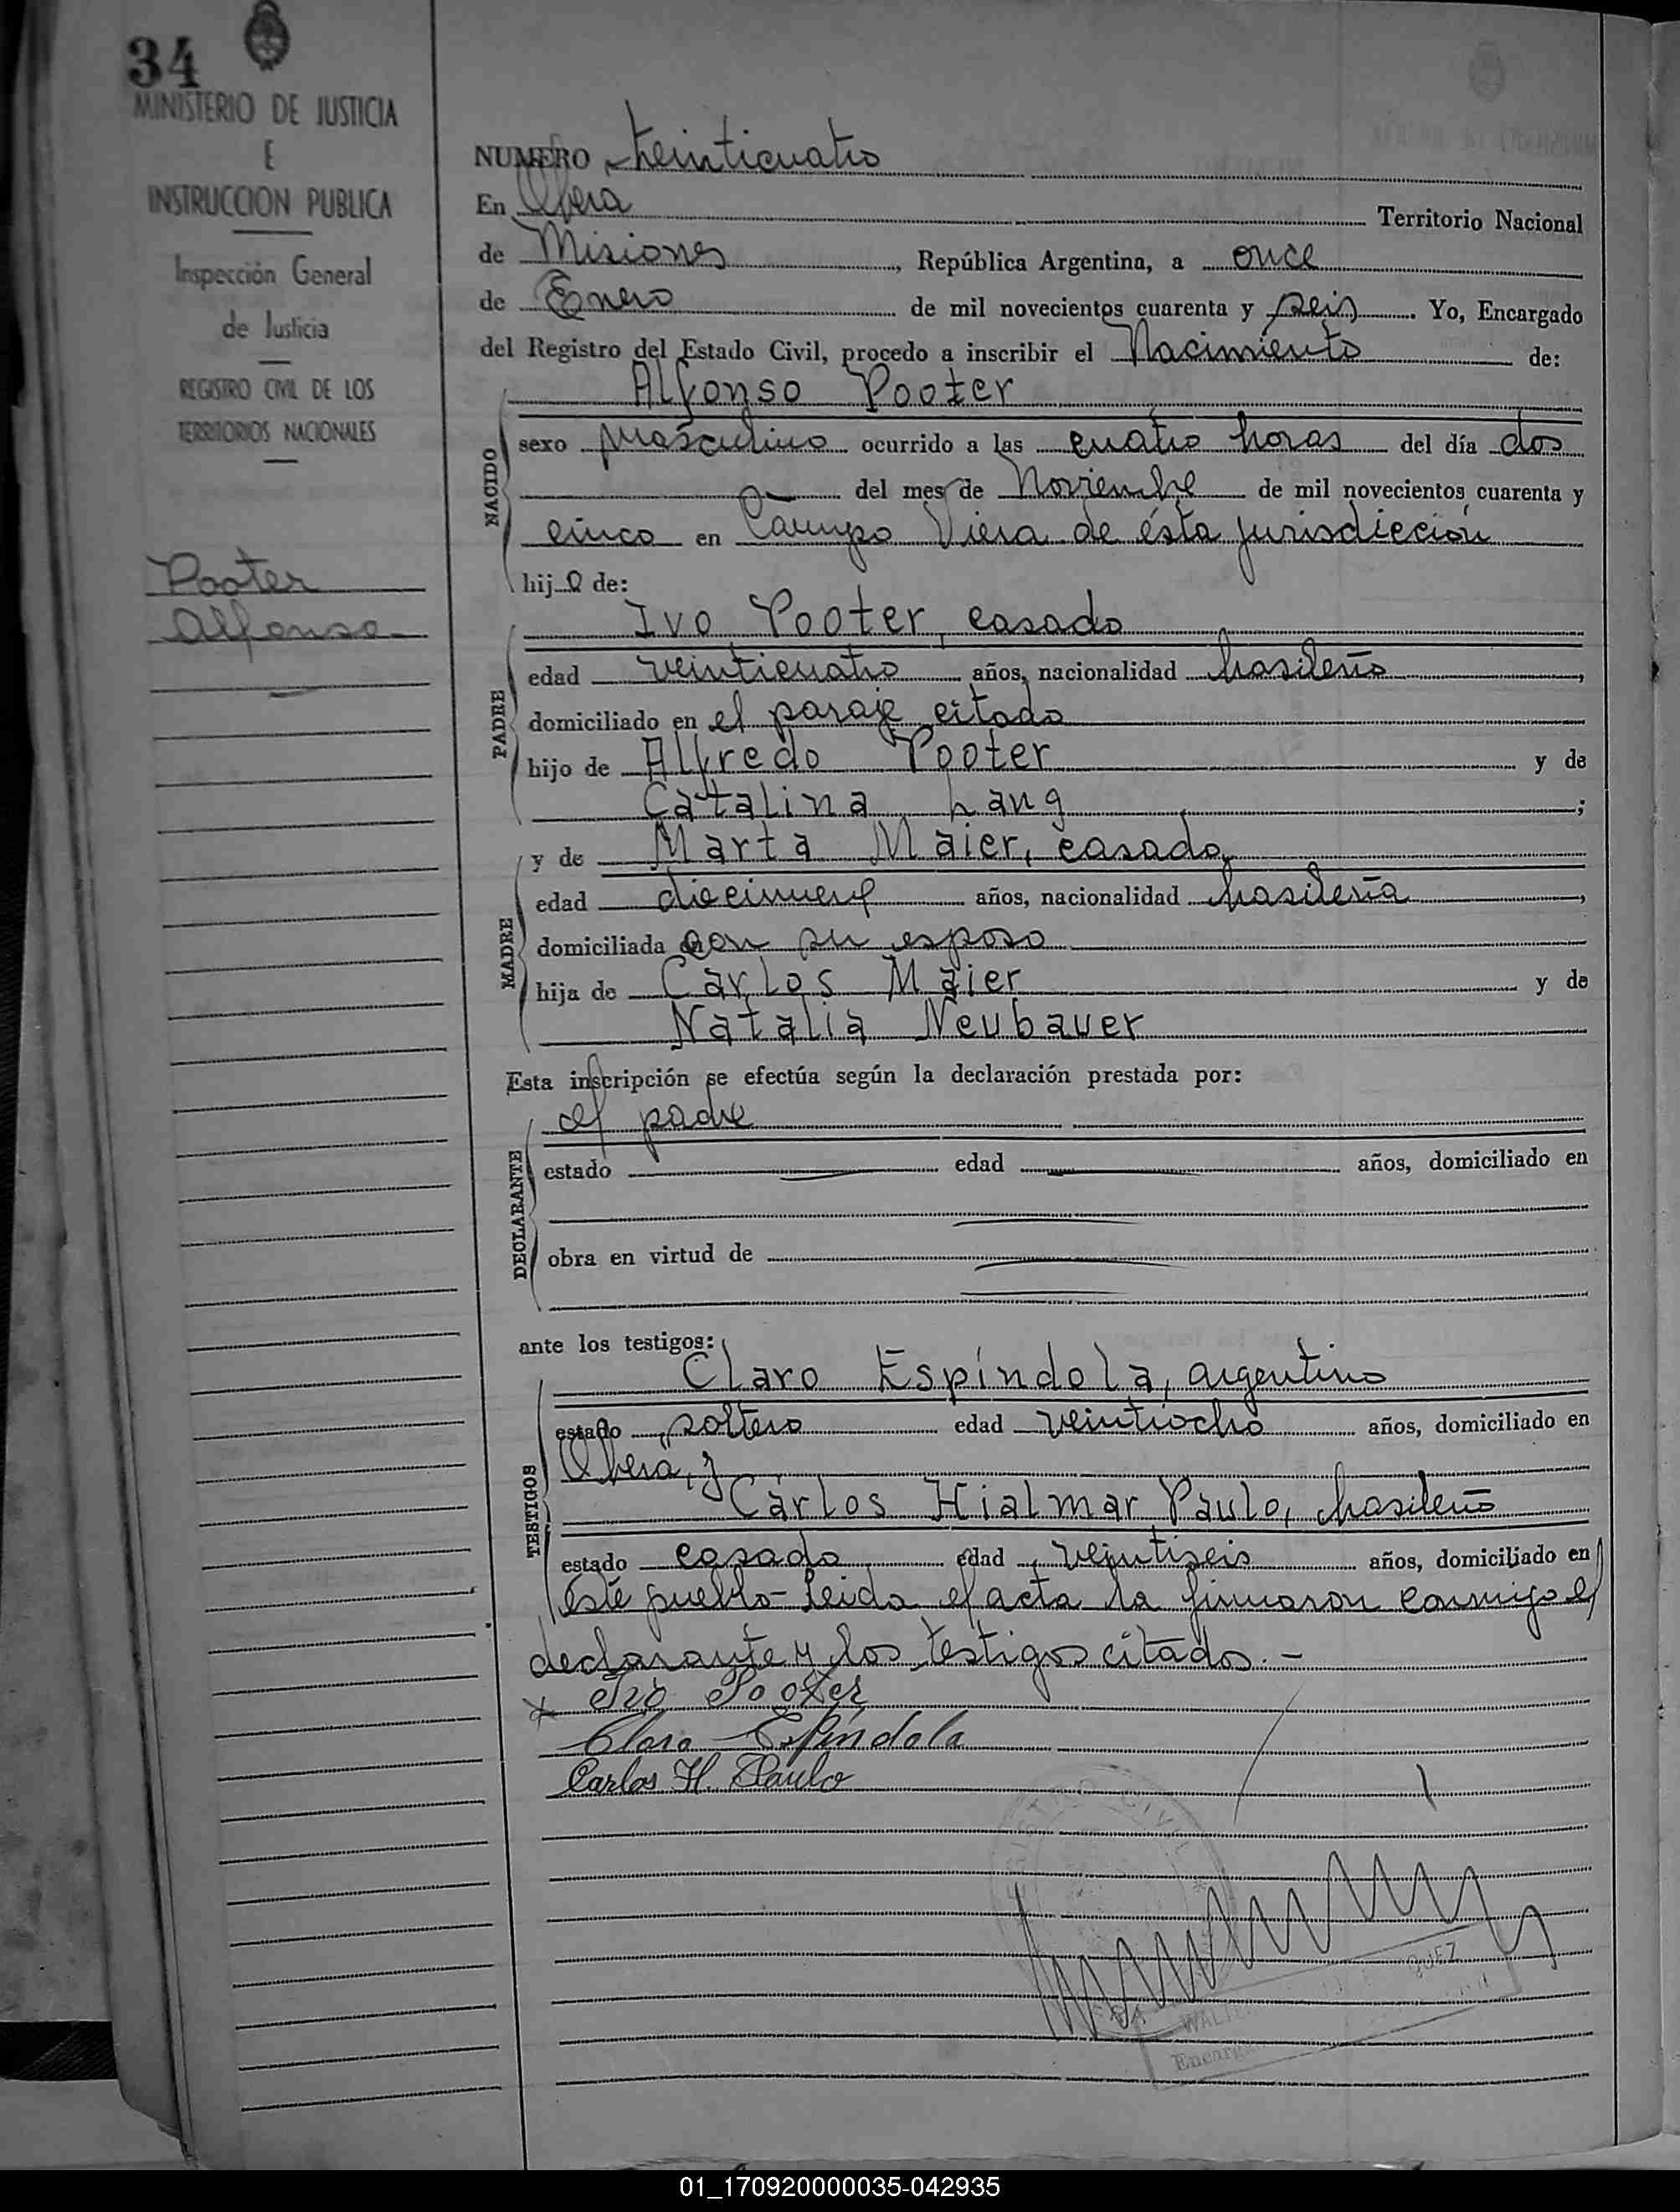 34
MINISTERIO DE JUSTICIA
E
INSTRUCCION PUBLICA
Inspección General
de Justicia
REGISTRO CIVIL DE LOS
TERRITORIOS NACIONALES
Pooter
Alfonso
NUMERO treinticuatro
En Obera Territorio Nacional
de Misiones, República Argentina, a once
de Enero de mil novecientos cuarenta y seis. Yo, Encargado
del Registro del Estado Civil, procedo a inscribir el Nacimiento de:
Alfonso Pooter
NACIDO
sexo masculino ocurrido a las cuatro horas del día dos
del mes de Noviembre de mil novecientos cuarenta y
cinco en Campo Viera de ésta jurisdicción
hijo de:
Ivo Pooter, casado
PADRE
edad veinticuatro años, nacionalidad brasileño,
domiciliado en el paraje citado
hijo de Alfredo Pooter y de
Catalina Lang;
y de Marta Maier, casada,
MADRE
edad diecinueve años, nacionalidad brasileña,
domiciliada con su esposo
hija de Carlos Maier y de
Natalia Neubauer
Esta inscripción se efectúa según la declaración prestada por:
el padre
DECLARANTE
estado edad años, domiciliado en
obra en virtud de
ante los testigos:
Claro Espíndola, argentino
TESTIGOS
estado soltero edad veintiocho años, domiciliado en
Obera, y
Carlos Hialmar Paulo, brasileño
estado casado edad veintiseis años, domiciliado en
éste pueblo- Leida el acta la firmaron conmigo el
declarante y los testigos citados.-
x Ivo Pooter
Claro Espíndola
Carlos H. Paulo
01_170920000035-042935